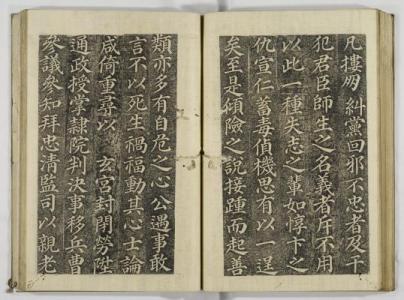 凡摟㧾糾黨回邪不忠者及干
犯君臣師生之名義者斥不用
以此一種失志之輩如惇卞之
仇宣仁蓄毒偵機思有以一逞
矣至是傾險之說接踵而起善
類亦多有自危之心公遇事敢
言不以死生禍福動其心士論
咸倚重焉以 玄宮封閉勞陞
通政授掌隸院判決事移兵曹
參議參知拜忠清監司以親老